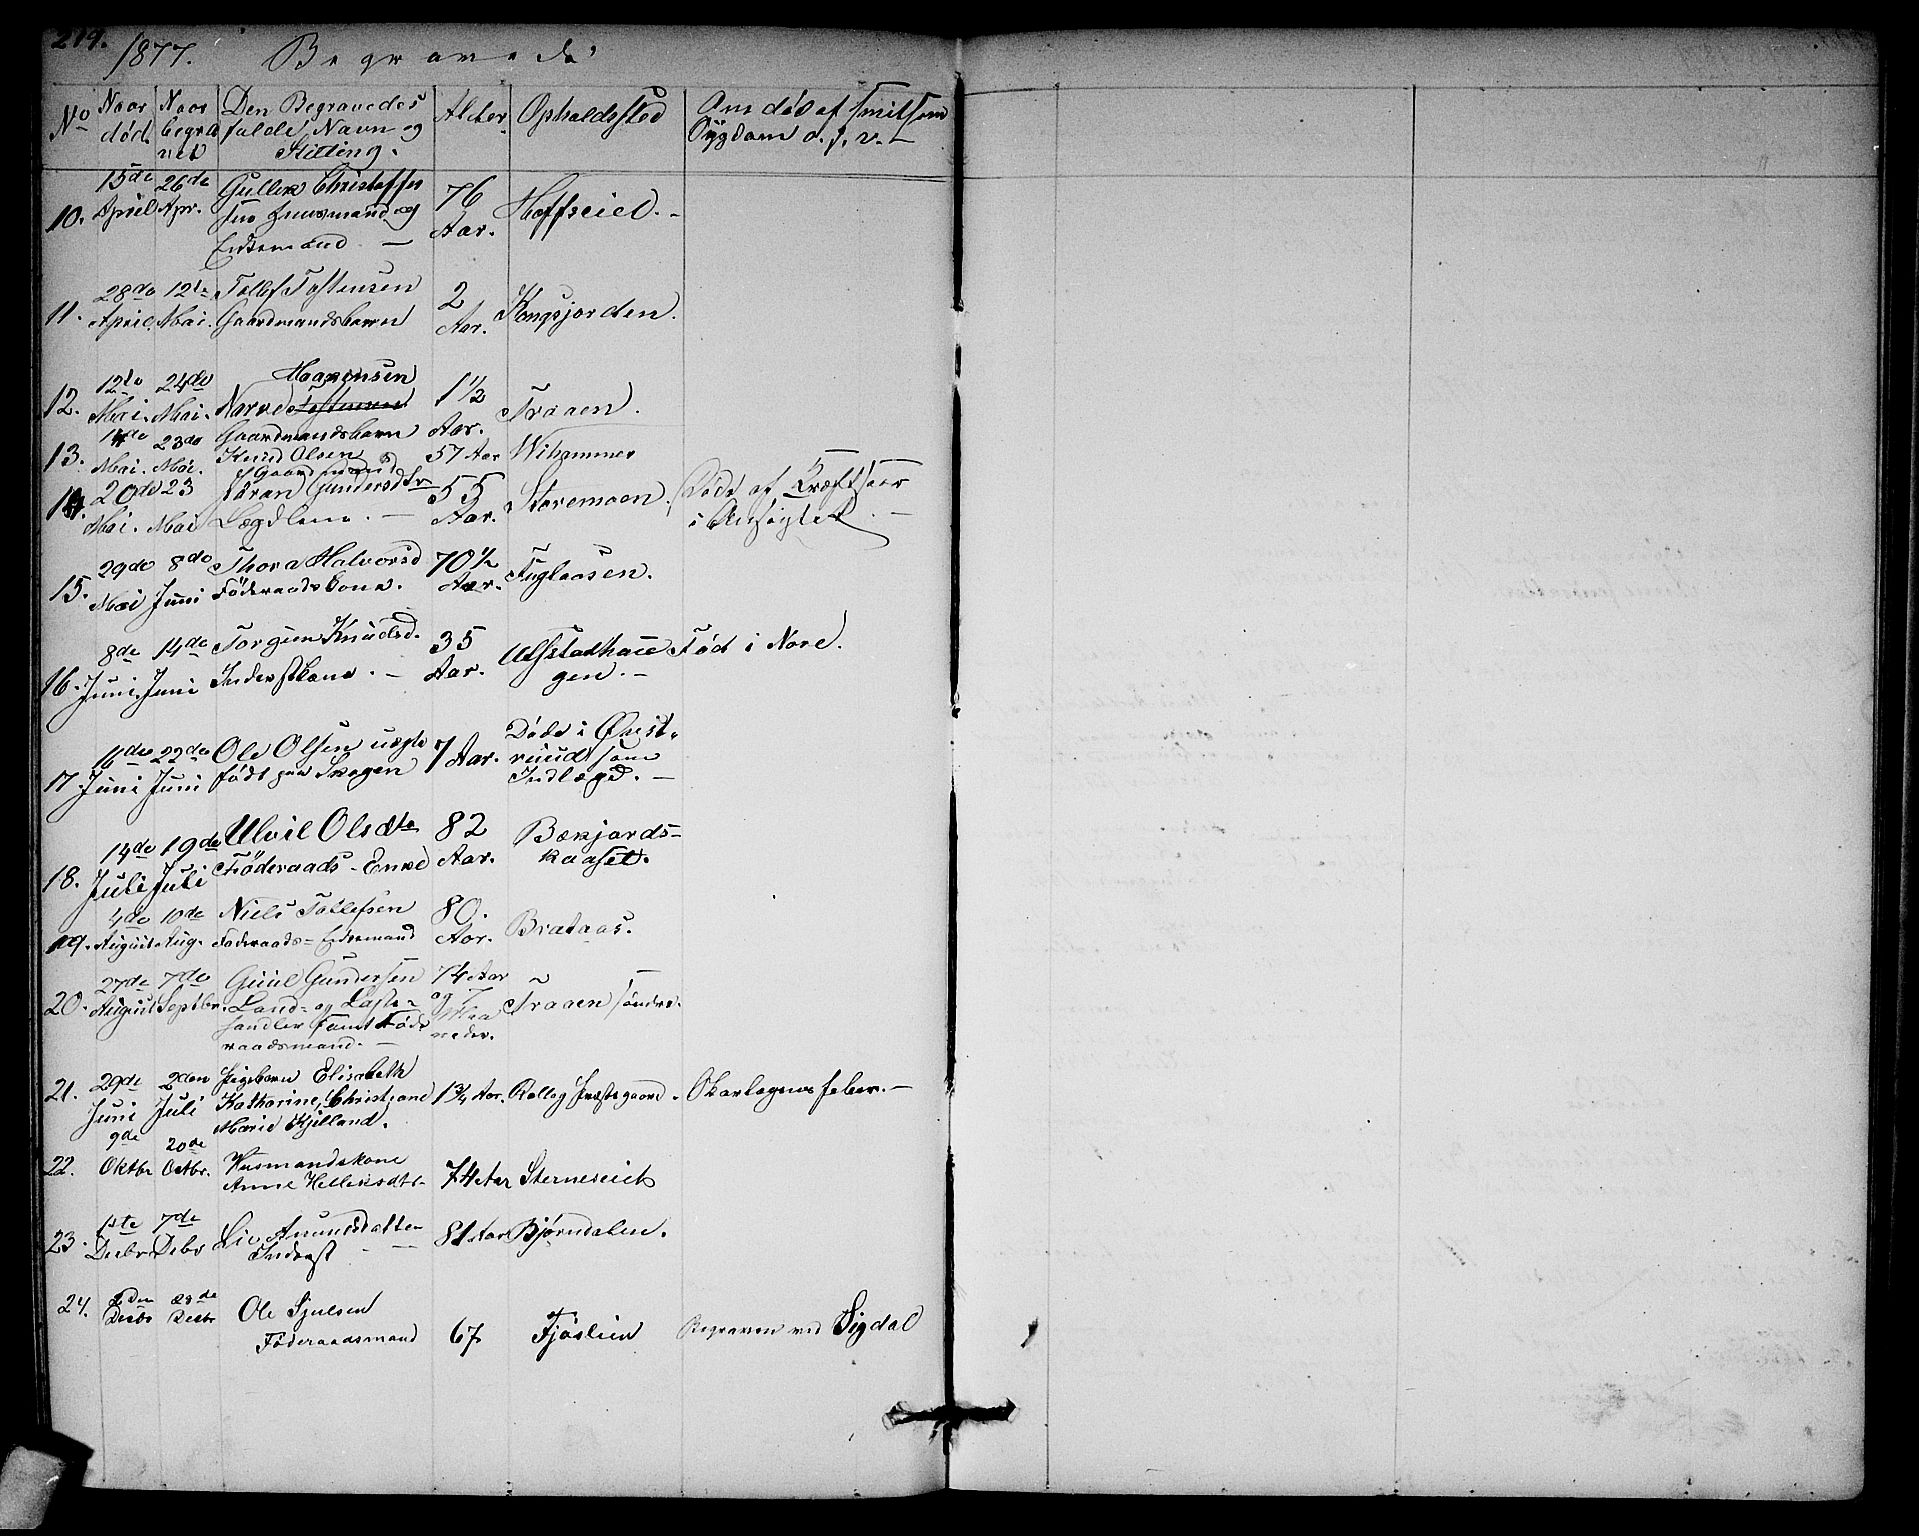 279.
1877. Begravede
No Naar død. Naar begravet Den Begravedes fulde Navn og Stilling. Alder. Opholdssted Om død af smitsom Sygdom o. s. v. –
10. 15de April 26de Apr. Gullek Christoffersen Huusmand og Enkemand – 76 Aar. Hoffseied. –
11. 28de April. 12te Mai. Tollef Tostensen Gaardmandsbarn 2 Aar. Kongsjorden.
12. 12te Mai. 24de Mai. Narve Haagensen Gaardmandsbarn 1 1/2 Aar. Traaen.
13. Mai. 23de Mai. Knud Olsen Gaardmand 57 Aar Wihammer
14. 20de Mai. 23 Mai Jøran Gundersdtr Lægdlem. – 55 Aar. Storemoen. Døde af Kræftsaar i Ansigtet. –
15. 29de Mai 8de Juni Thora Halvorsd Føderaadskone. 70 1/2 Aar. Fuglaasen.
16. 8de Juni. 14de Juni Torgun Knudsd. Inderstkone. – 35 Aar. Alfstadhaugen. – Fød i Nore.
17. 16de Juni 22de Juni Ole Olsen uægte født paa Skogen 7 Aar. Døde i Øvstruud som Indlægd. –
18. 14de Juli 19de Juli Ulvil Olsdtr Føderaads-Enke 82 Aar. Bækjordskaaset.
19. 4de August 10de Aug. Niels Tollefsen Føderaads=Enkemand 80. Aar. Brataas.
20. 27de August 7de Septbr. Guul Gundersen Land- og Lastehandler samt Føderaadsmand. – 74 Aar og 7 Maaneder. Traaen søndre.
21. 29de Juni 2den Juli Pigebarn Elisabeth Katharine, Christiane Marie Kjelland. 1 3/4 Aar. Rollag Præstegaard. Skarlagensfeber. –
22. 9de Oktbr 20de Octbr. Husmandskone Anne Helleksdtr 74 Aar Sterneseiet
23. 1ste Decbr 7de Debr Liv Amundsdatter Inderst – 81 Aar Bjørndalen.
24. 2den Decbr 28de Decbr Ole Sjulsen Føderaadsmand 67 Fjøslien Begraven ved Sigdal